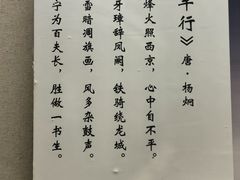 军行》 唐·杨炯
烽火照西京，心中自不平。
牙璋辞凤阙，铁骑绕龙城。
雪暗凋旗画，风多杂鼓声。
宁为百夫长，胜做一书生。